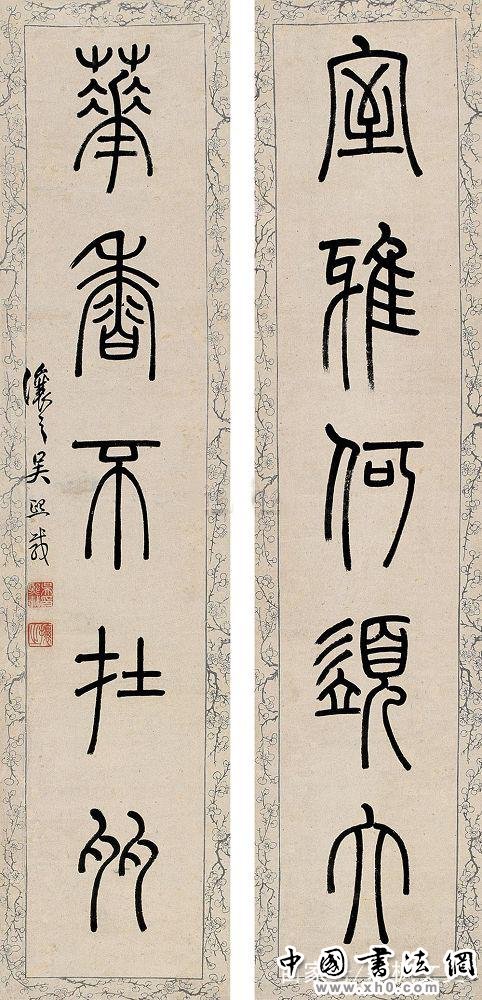 室雅何須大
華香不在多
讓之吳熙載
中國書法網
www.xh0.com